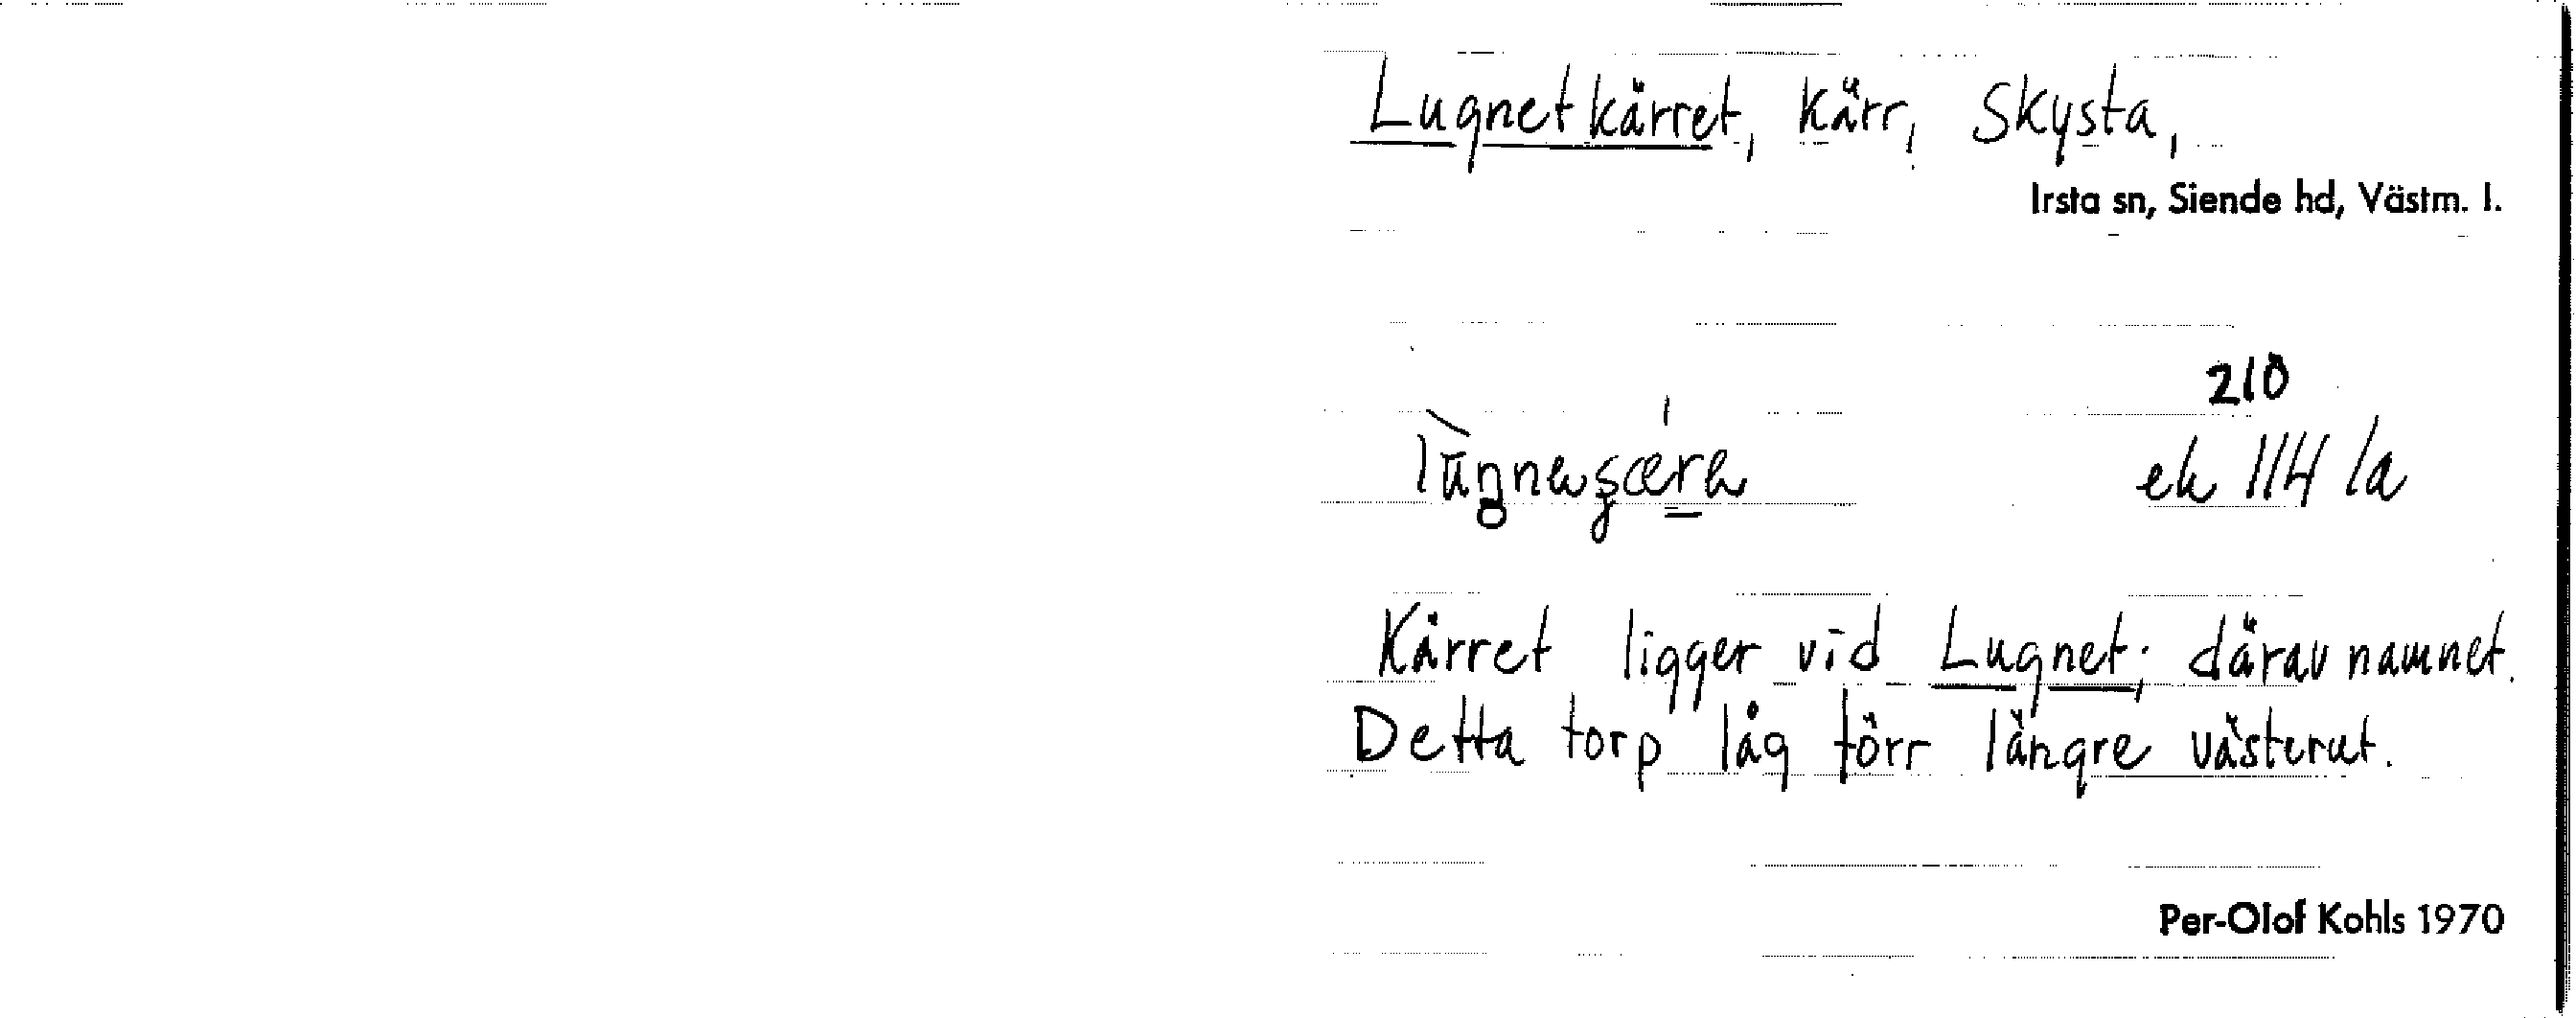 Lugnetkärret, kärr, Skysta,
Irsta sn, Siende hd, Västm. l.
210
ek 114 la
Kärret ligger vid Lugnet; därav namnet.
Detta torp låg förr längre västerut.
Per-Olof Kohls 1970